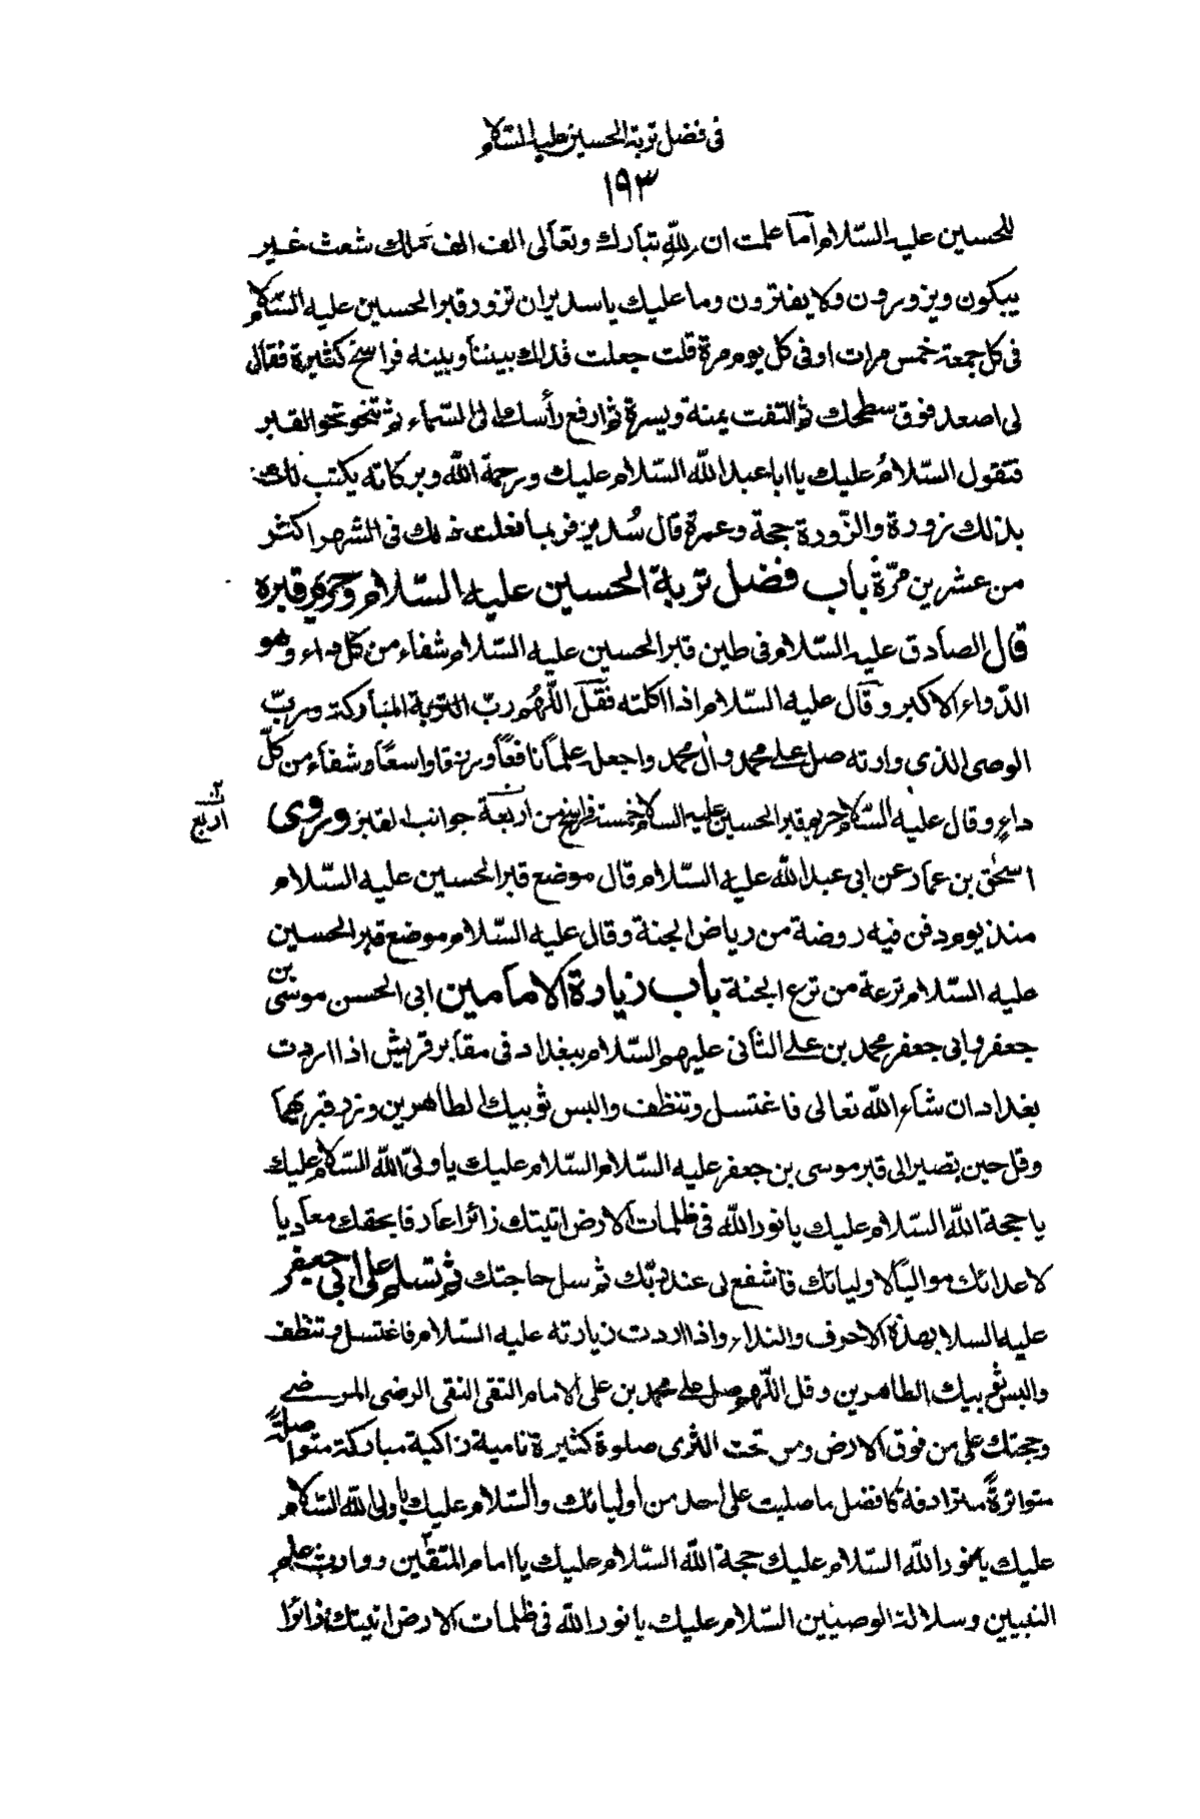 فى فضل تربة الحسين عليه السّلام
١٩٣
للحسين عليه السّلام اما علمت ان لِلّه تبارك وتعالى الف الف ملك شعث غبر
يبكون ويزورون ولا يفترون وما عليك يا سدير ان تزور قبر الحسين عليه السّلام
فى كل جمعة خمس مرات او فى كل يوم مرة قلت جعلت فداك بيننا وبينه فراسخ كثيرة فقال
لى اصعد فوق سطحك ثم التفت يمنة ويسرة ثم ارفع رأسك الى السّماء ثم تنحو نحو القبر
فتقول السّلامُ عليك يا ابا عبد الله السّلام عليك ورحمة الله وبركاته يكتب لك
بذلك زورة والزّورة حجة وعمرة قال سُدير فربما فعلت ذلك فى الشهر اكثر
من عشرين مرّة باب فضل تربة الحسين عليه السّلام وحريم قبره
قال الصادق عليه السّلام فى طين قبر الحسين عليه السّلام شفاء من كل داء وهو
الدّواء الاكبر وقال عليه السّلام اذا اكلته فقل اللّهُم ربّ التربة المباركة وربّ
الوصى الذى وارته صل على محمد وال محمد واجعله علماً نافعاً ورزقا واسعاً وشفاء من كلّ
داءٍ وقال عليه السّلام حريم قبر الحسين عليه السلام خمسة فراسخ من اربعة جوانب القبر وروى
اربع
اسحٰق بن عمار عن ابى عبد الله عليه السّلام قال موضع قبر الحسين عليه السّلام
منذ يوم دفن فيه روضة من رياض الجنة وقال عليه السّلام موضع قبر الحسين
عليه السّلام ترعة من ترع الجنة باب زيارة الامامين ابى الحسن موسى بن
جعفر وابى جعفر محمد بن على الثانى عليهم السّلام ببغداد فى مقابر قريش اذا اردت
بغداد ان شاء الله تعالى فاغتسل وتنظف والبس ثوبيك الطاهرين وزر قبريهما
وقل حين تصير الى قبر موسى بن جعفر عليه السّلام السّلام عليك يا ولىّ الله السّلام عليك
يا حجة الله السّلام عليك يا نور الله فى ظلمات الارض اتيتك زائرا عارفا بحقك معاديا
لاعدائك مواليًا لاوليائك فاشفع لى عند ربّك ثم سل حاجتك ثم تسلم على ابى جعفر
عليه السلا بهذه الاحرف والنداء واذا اردت زيارته عليه السّلام فاغتسل وتنظف
والبس ثوبيك الطاهرين وقل اللّهم صل على محمد بن على الامام التقى النقى الرضى المرضى
وحجتك على من فوق الارض ومن تحت الثرى صلوة كثيرة نامية زاكية مباركة متواصلةً
متواترةً مترادفة كافضل ما صليت على احد من اوليائك والسّلام عليك يا ولى الله السّلام
عليك يا نور الله السّلام عليك حجة الله السّلام عليك يا امام المتقين ووارث علم
النبيين وسلالة الوصيين السّلام عليك يا نور الله فى ظلمات الارض اتيتك زائرا